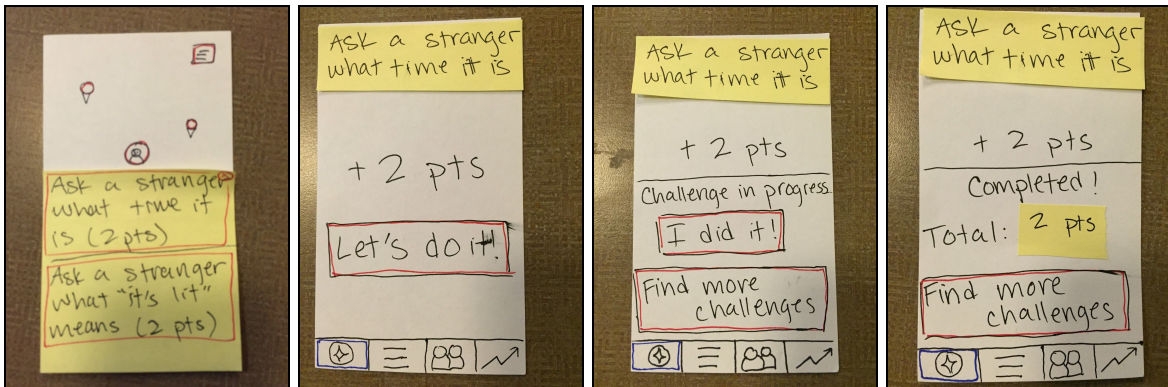 Ask a stranger
what time it
is (2pts)
Ask a stranger
what "it's lit"
means (2 pts)
Ask a stranger
what time it is
+ 2 pts
Let's do it!
Ask a stranger
what time it is
+ 2 pts
Challenge in progress
I did it!
Find more
challenges
Ask a stranger
what time it is
+ 2 pts
Completed!
Total: 2 pts
Find more
challenges